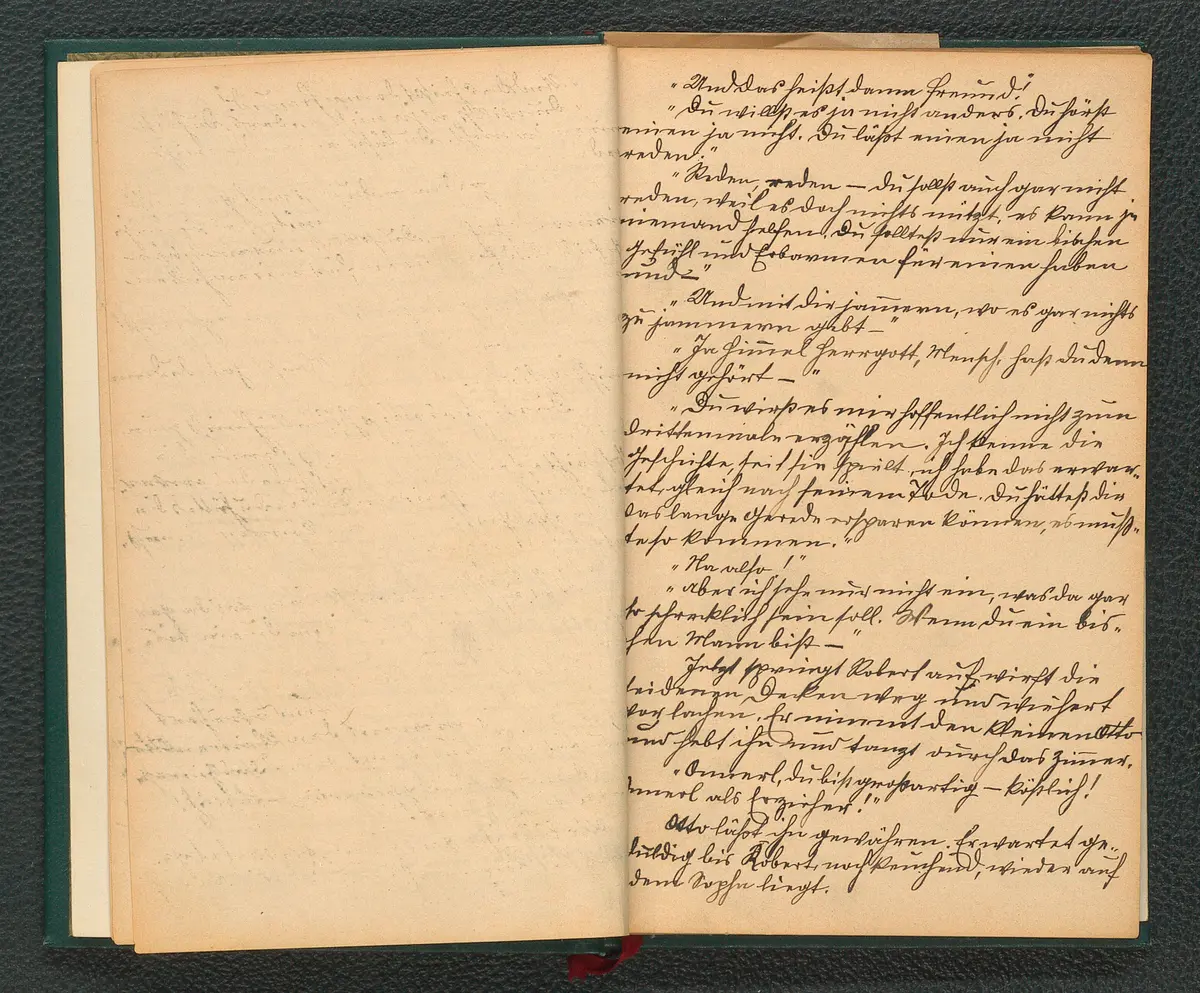 „Und das heißt dann Freund!"
„Du willst es ja nicht anders. Du hörst
einen ja nicht. Du läßt einen ja nicht
reden."
„Reden, reden — du sollst auch gar nicht
reden, weil es doch nichts nützt, es kann ja
niemand helfen. Du solltest nur ein bischen
Gefühl und Erbarmen für einen haben
und —"
„Und mit dir jammern, wo es gar nichts
zu jammern gibt —"
„Ja Himmel Herrgott, Mensch, hast du denn
nicht gehört — "
„Du wirst es mir hoffentlich nicht zum
drittenmale erzählen. Ich kenne die
Geschichte, seit sie spielt, ich habe das erwar-
tet, gleich nach seinem Tode. Du hättest dir
das lange Gerede ersparen können, es muß-
te so kommen."
„Na also!"
„Aber ich sehe nur nicht ein, was da gar
so schrecklich sein soll. Wenn du ein bis-
chen Mann bist —"
Jetzt springt Robert auf, wirft die
seidenen Decken weg und wiehert
vor lachen. Er nimmt den kleinen Otto
und hebt ihn und tanzt durch das Zimmer.
„Ommerl, du bist großartig — köstlich!
Ommerl als Erzieher!"
Otto läßt ihn gewähren. Er wartet ge-
duldig bis Robert, noch keuchend, wieder auf
dem Sopha liegt.